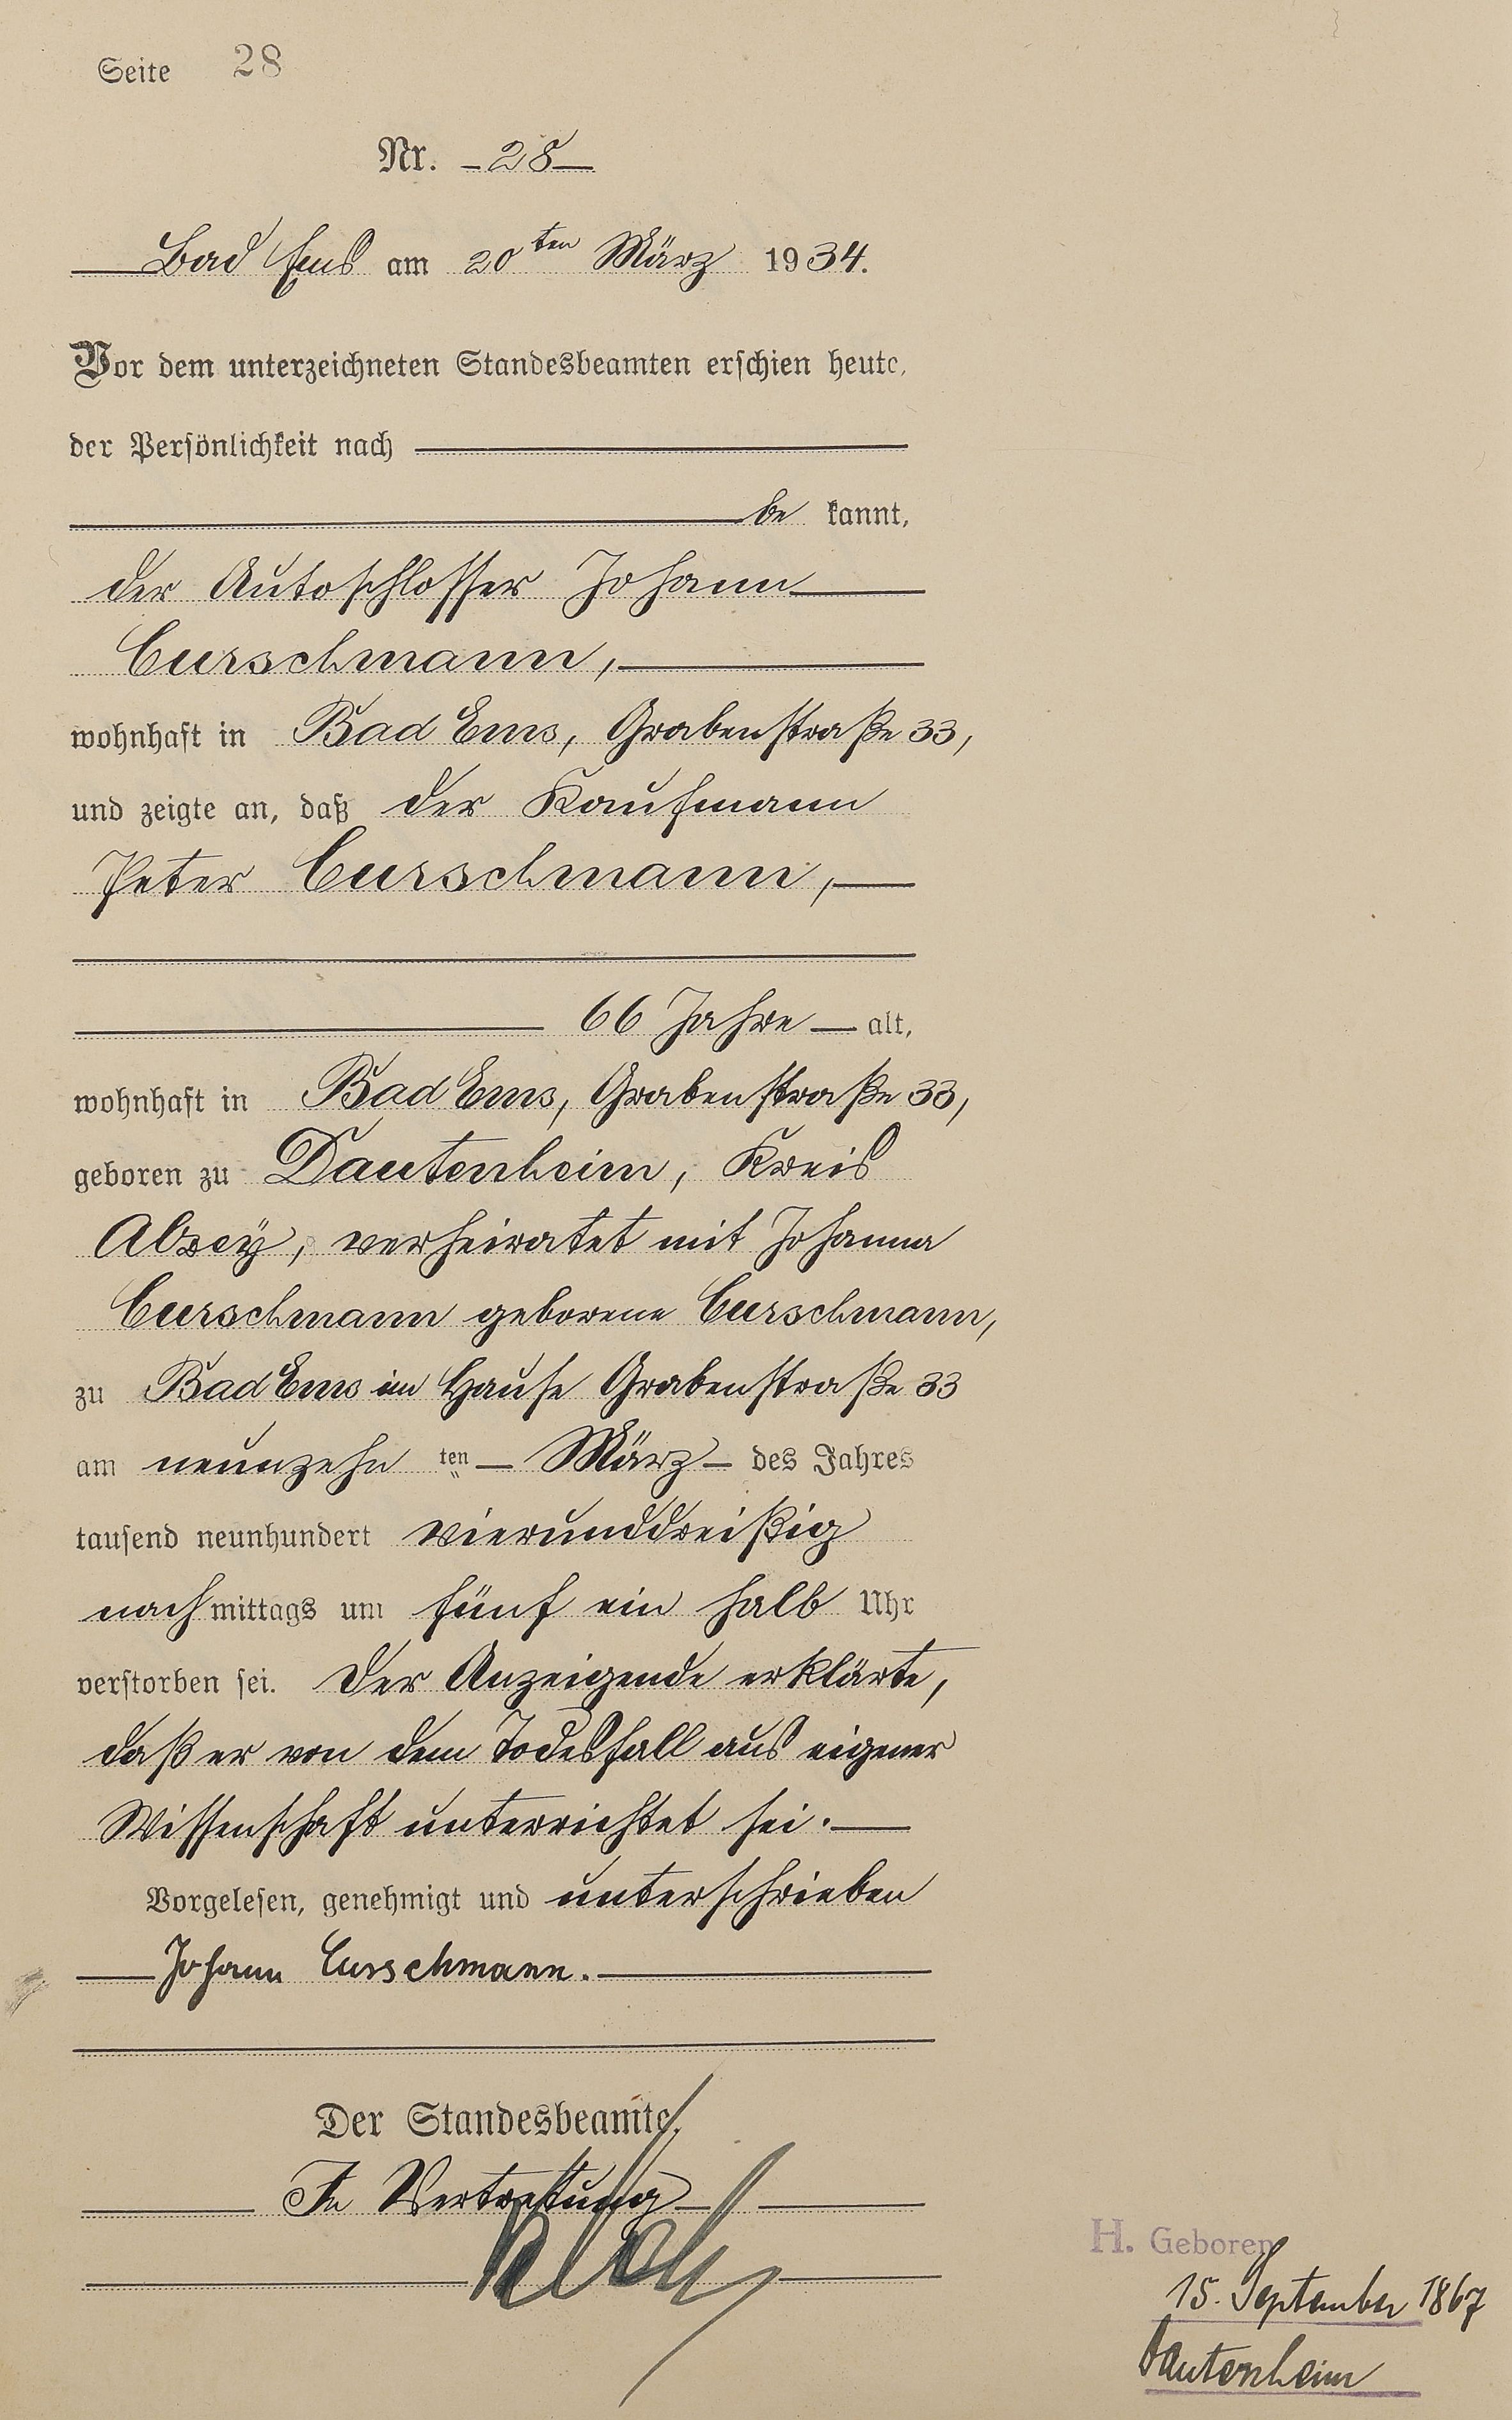 Seite 28
Nr. 28
Bad Ems am 20ten März 1934.
Vor dem unterzeichneten Standesbeamten erschien heute,
der Persönlichkeit nach
be kannt,
der Autoschlosser Johann
Curschmann,
wohnhaft in Bad Ems, Grabenstraße 33,
und zeigte an, daß der Kaufmann
Peter Curschmann,
66 Jahre alt,
wohnhaft in Bad Ems, Grabenstraße 33,
geboren zu Dautenheim, Kreis
Alzey, verheiratet mit Johanna
Curschmann geborene Curschmann,
zu Bad Ems im Hause Grabenstraße 33
am neunzehn ten März des Jahres
tausend neunhundert vierunddreißig
nachmittags um fünf ein halb Uhr
verstorben sei. Der Anzeigende erklärte,
daß er von dem Todesfall aus eigener
Wissenschaft unterrichtet sei.
Vorgelesen, genehmigt und unterschrieben
Johann Curschmann.
Der Standesbeamte.
In Vertretung
H. Geboren
15. September 1867
Dautenheim